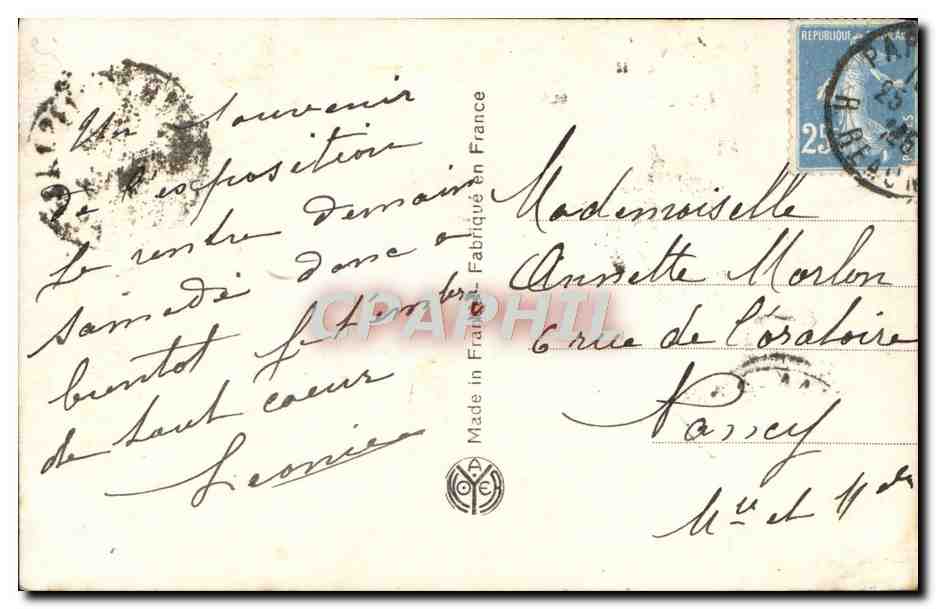 Un souvenir
de l'exposition
Je rentre demain
samedi donc a
bientot je t'embrasse
de tout coeur
Leonie
Made in France - Fabriqué en France
CPAPHIL
REPUBLIQUE
25
PAR
25
R BEAUM
Mademoiselle
Annette Morlon
6 rue de l'oratoire
Nancy
Mthe et Mlle